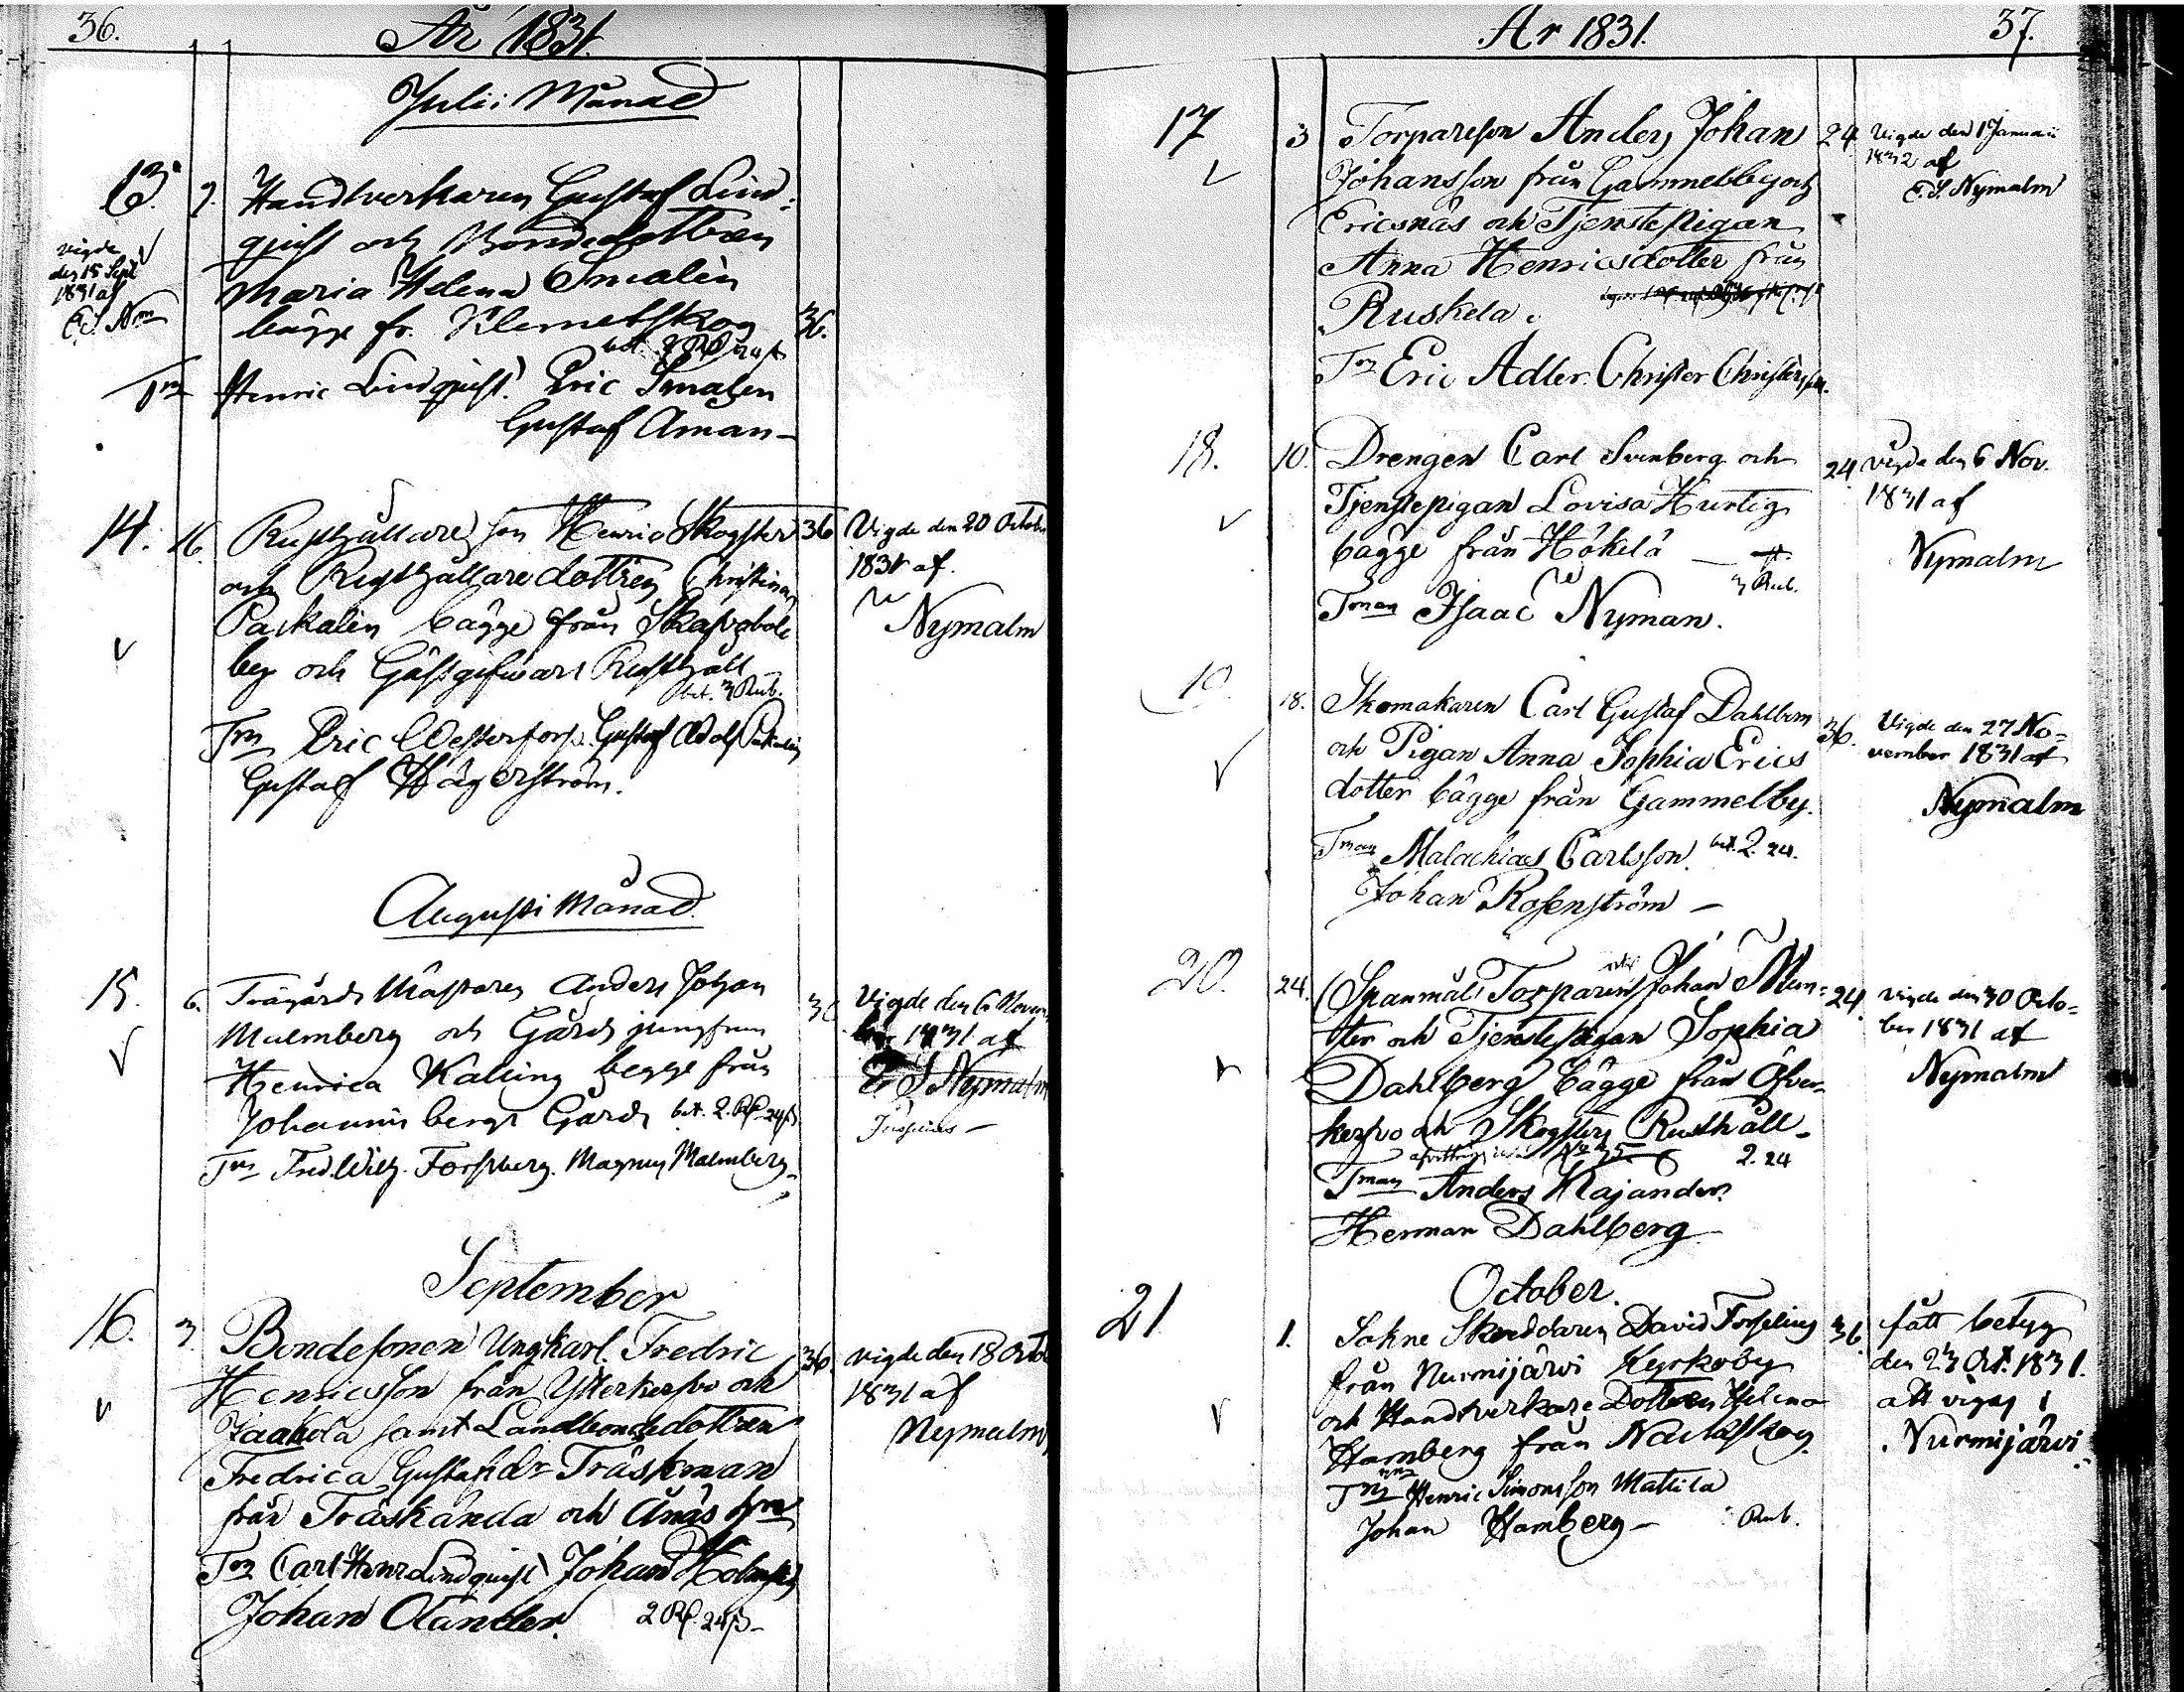 36.
År 1831.
Julii Månad
13.
9.
Handtverkaren Gustaf Lind:
quist och Bondedottren
Maria Helena Smalén
bägge fr. Klemetskog
36.
bet. 2 Rd 24 s
Vigde
den 15 Sept
1831 af
Tm Henric Lindquist. Eric Smalen
Gustaf Aman
14.
16
Rusthållare son Henric Skogster
36
och Rusthållare dottren Christina
Paskalin bägge från
by och Gästgifvars Rusthåll
bet. 3 Rub.
Tm Eric Westerfors. Gustaf Adolf
Gustaf Hägerström.
Vigde den 20 Octob
1831 af
Nymalm
Augusti Månad.
15.
6.
Trägårds Mästaren Anders Johan
Malmberg och Gårds jungfrun
Henrica Kalling begge från
Johannis bergs Gård bet. 2. Rd 24 s
Tm Fred. Wilh. Forssberg. Magnus Malmberg
Vigde den 6 Novem
1831 af
E. S Nymalm
September
16.
3.
Bondesonen Ungkarl. Fredric
36.
Henricsson från Ytterkerfvo och
Jaakola samt Landbondedottren
Fredrica Gustafsdr Träskman
från Träskända och Ånäs
Tm Carl Henr Lindquist Johan
Johan Olander. 2 Rd. 24 s
Vigde den 18 Octo
1831 af
Nymalm
År 1831.
37.
17
3
Torpareson Anders Johan
24
Johansson från Gammelby och
Ericsnäs och Tjenstepigan
Anna Henricsdotter från
Ruskela.
Tm Eric Adler. Christer Christersson.
Vigde den 1 Januarii
1832 af
E. S. Nymalm
18.
10.
Drengen Carl Svenberg och
24
Tjenstepigan Lovisa Hurtig
bägge från Hökelä
3 Rub.
Tman Isaac Nyman.
Vigde den 6 Nov.
1831 af
Nymalm
19.
18.
Skomakaren Carl Gustaf Dahlbom
36.
och Pigan Anna Sophia Erics
dotter bägge från Gammelby.
Tman Malachias Carlsson. bet. 2. 24.
Johan Rosenström
Vigde den 27 No-
vember 1831 af
Nymalm
20.
24.
Spanmåls Torparen Johan Mun-
24
ster och Tjenstepigan Sophia
Dahlberg bägge från Öfver-
kerfvo och Skogsters Rusthåll
2. 24
Tman Anders Majander
Herman Dahlberg
Vigde den 30 Octo-
ber 1831 af
Nymalm
October.
21
1.
Sokne Skreddaren David Forselius
36
från Nurmijärvi Kyrkoby
och Handtverkare Dottren Helena
Hamberg från
Tm Henric Simonsson Mattila
Johan Hamberg
Rub.
fått betyg
den 23 Oct. 1831.
att vigas i
Nurmijärvi